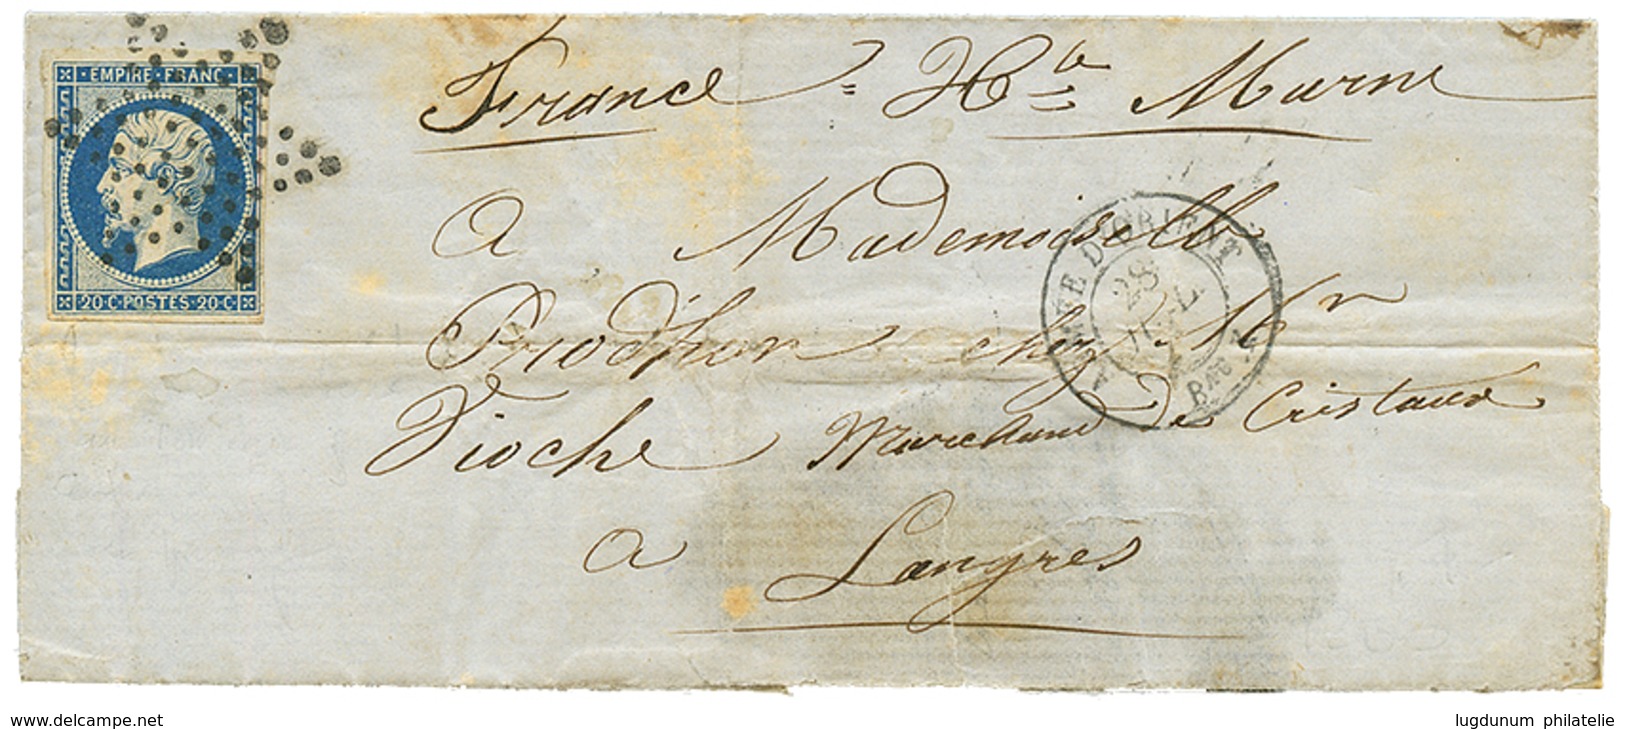 EMPIRE · FRANC ·
20 · C · POSTES · 20 · C
France = Hte Marne
A Mademoiselle
Prodhon chez Mr
Vioche Marchand de Cristaux
a Langres
D'ORIENT
28
JUIL.
BAU
www.delcampe.net
lugdunum philatelie